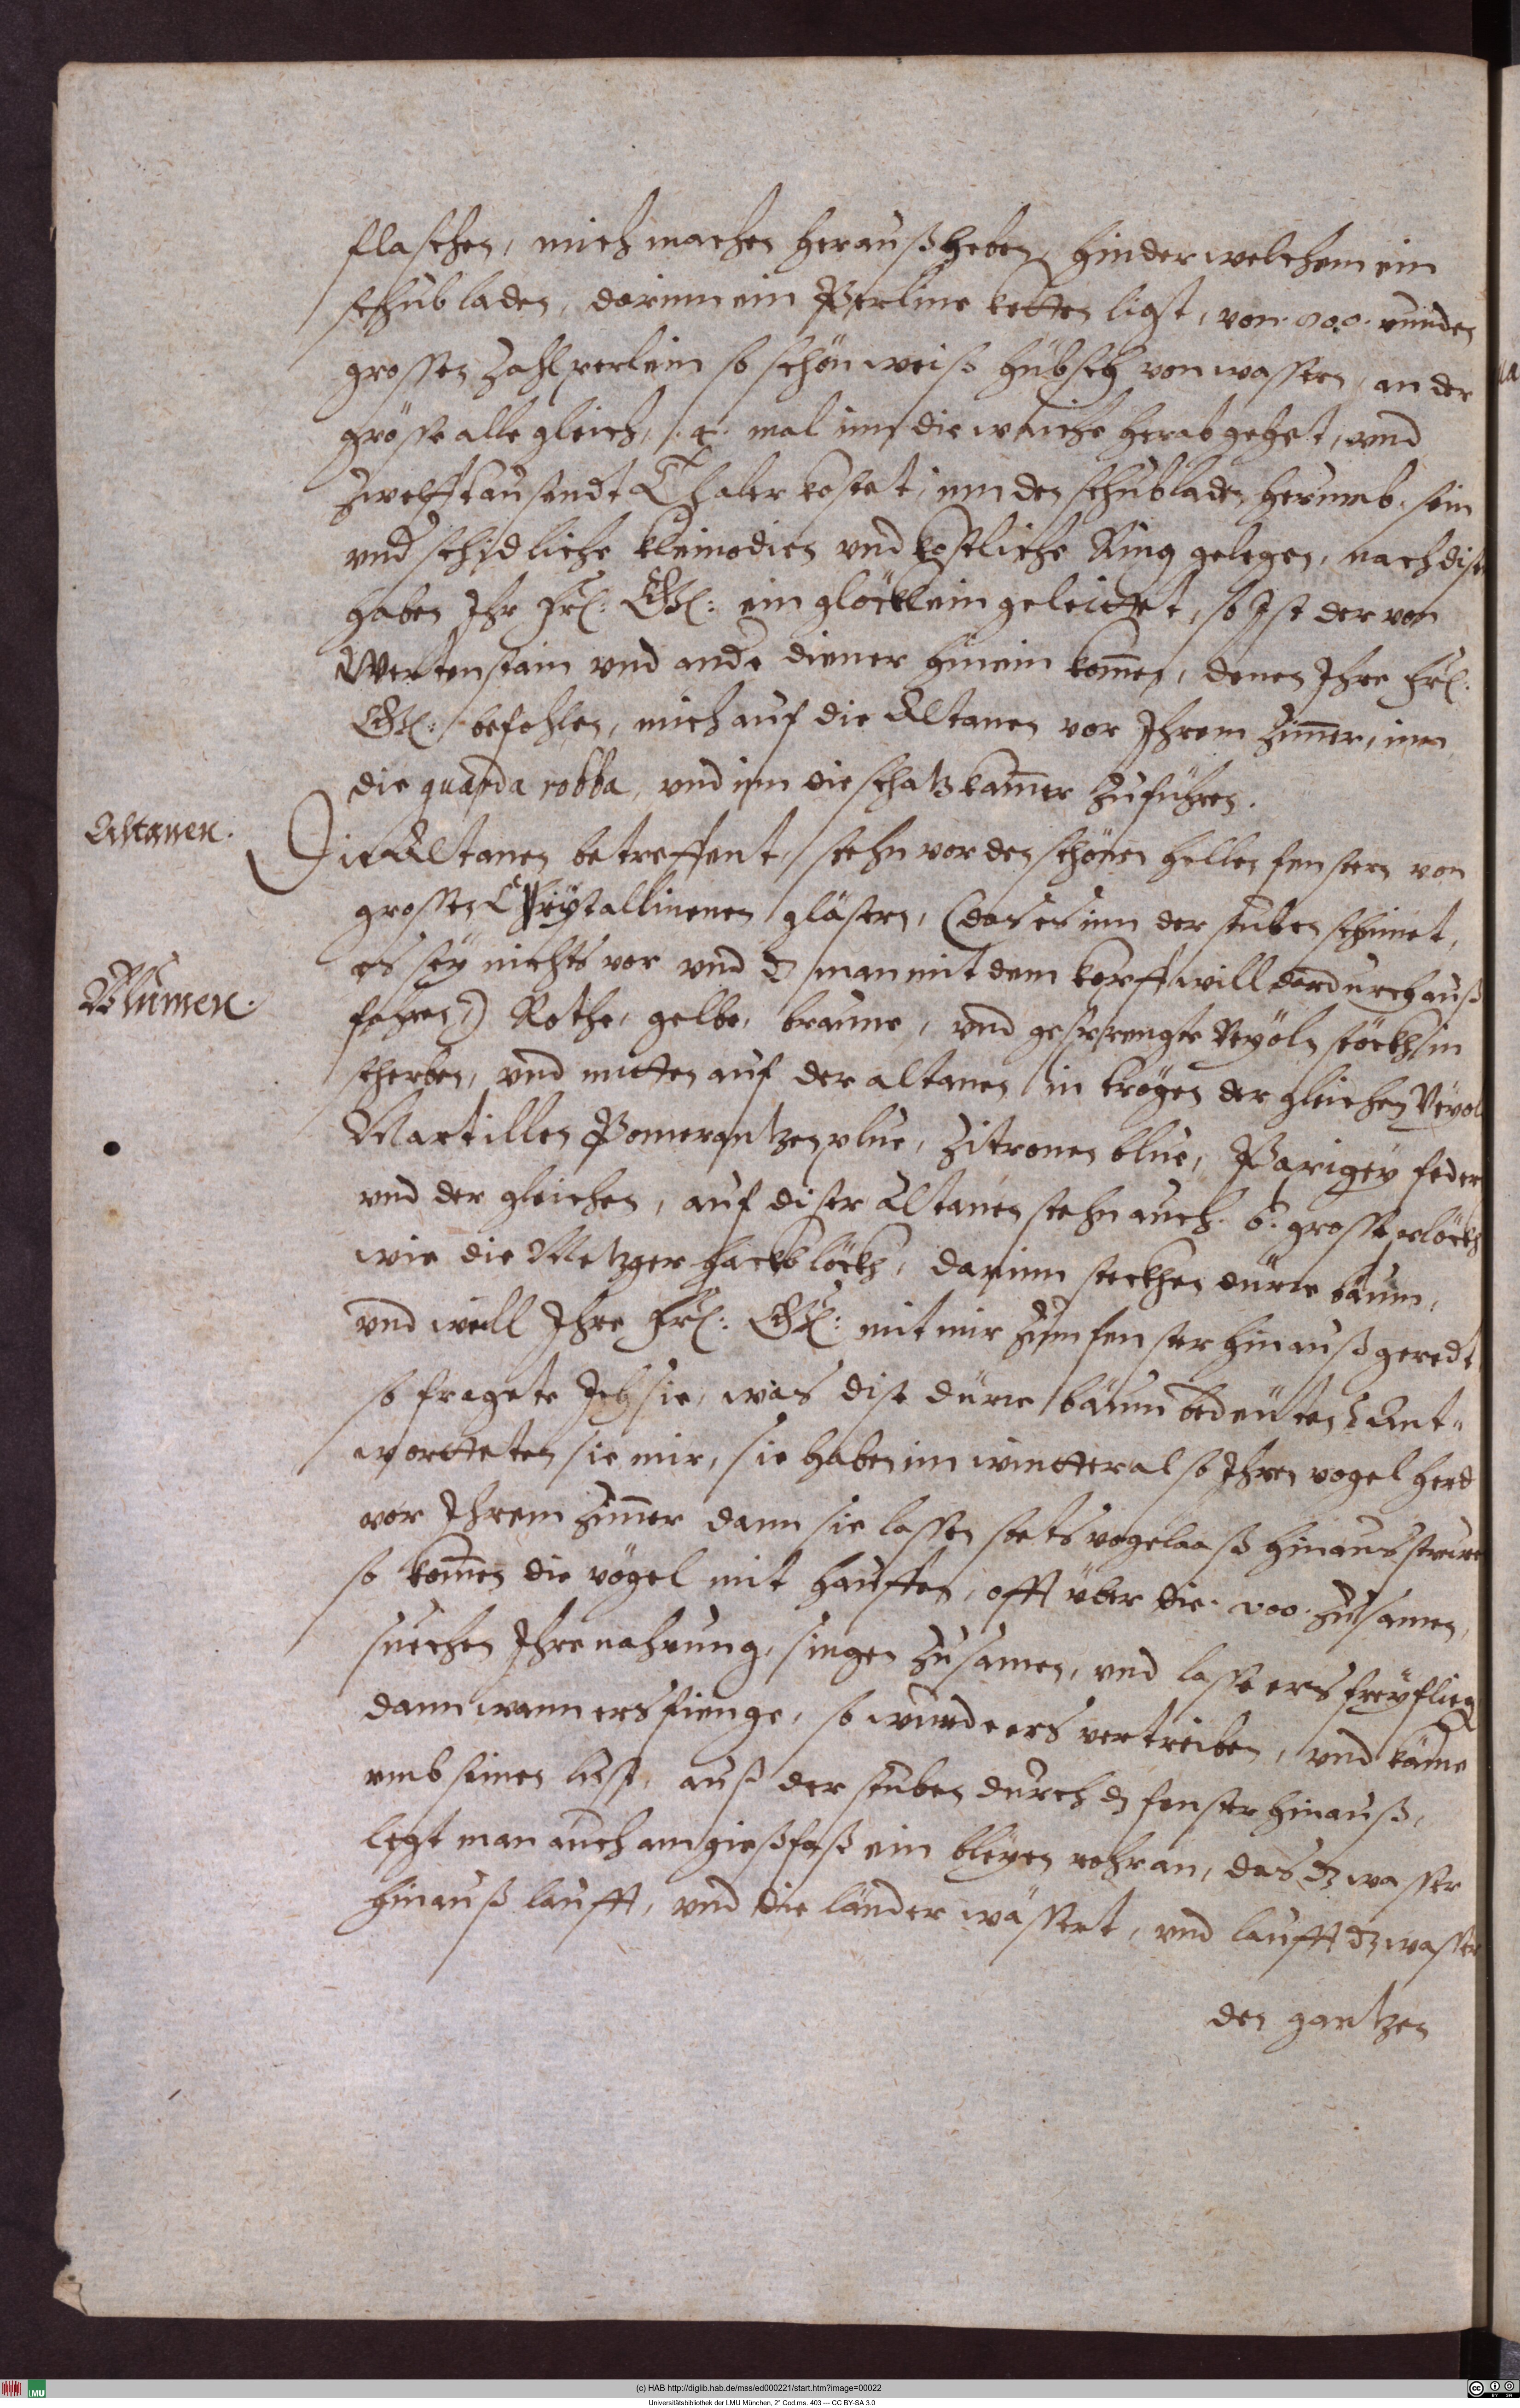 flaschen, mich machen heraußheben, hinder welchem ein
schubladen, darinn ein Perline ketten ligt, von runden
grossen Zahlperlein so schön weiß hübsch von wasser, an der
grösse alle gleich, .4. mal inn die waiche herab gehet, vnd
Zwelfftausendt Thaler kostet, inn den schubladen herumb, sein
vnd schidliche kleinodien vnd kostliche Ring gelegen, nach disem
haben Ihr Frl: Gl: ein glöcklein geleittet, so Ist der von
Wertenstain vnd andre diener hinein komen, denen Ihre Frl:
Gl: befohlen, mich auf die Altanen vor Ihrem Zimer, inn
die quarda robba, vnd inn die schatzkamer Zuführen.
Altanen.
Die Altanen betreffent, stehn vor den schönen hellen fenstern von
grossen Christallinenen gläsern, (das es inn der stuben scheinet,
es sey nichts vor vnd dz man mit dem kopff will dardurch auß
Blumen.
fahren) Rothe, gelbe, braune, vnd gesprengte Veyoln stöckh in
scherben, vnd mitten auf der altanen in krögen der gleichen Veyol
Martillen Pomerantzenplue, Zitronen blue, Parigey feder
vnd der gleichen, auf diser Altanen stehn auch .6. grosse plöckh
wie die Metzger hackblöckh, darinn steckhen dürre bäum,
vnd weill Ihre Frl: Gl: mit mir Zum fenster hinauß geredt
so fragete Ich sie, was dise dürre bäum bedeuten? Ant-
wortteten sie mir, sie haben im wintter also Ihren vogel herd
vor Ihrem Zimer dann sie lassen stets vogelaaß hinaus strewen
so komen die vögel mit hauffen, offt über die Zusamen,
suechen Ihre nahrung, singen Zusamen, vnd lasse ers frey flieg
dann wann ers fienge, so wurde ers vertreiben, vnd käme
vmb seinen lust, auß der stuben durch dz fenster hinauß,
legt man auch am gießfaß ein bleyen rohr an, das dz wasser
hinauß laufft, vnd die länder wässert, vnd laufft dz wasser
den gantzen
(c) HAB http://diglib.hab.de/mss/ed000221/start.htm?image=00022
Universitätsbibliothek der LMU München, 2° Cod.ms. 403 --- CC BY-SA 3.0